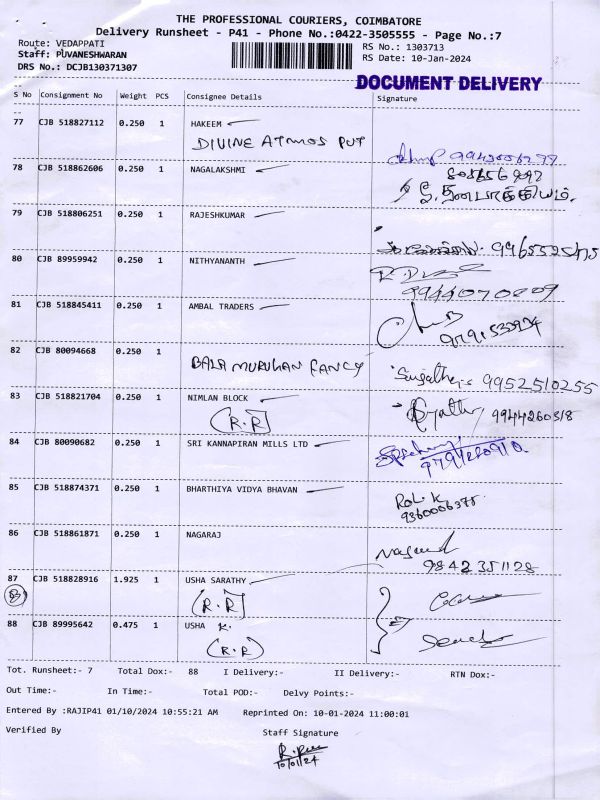 THE PROFESSIONAL COURIERS, COIMBATORE
Delivery Runsheet - P41 - Phone No.:0422-3505555 - Page No.:7
Route: VEDAPPATI
RS No.: 1303713
Staff: PUVANESHWARAN
RS Date: 10-Jan-2024
DRS No.: DCJB130371307
DOCUMENT DELIVERY
S No Consignment No Weight PCS Consignee Details Signature
77 CJB 518827112 0.250 1 HAKEEM
DIVINE ATMOS PVT
78 CJB 518862606 0.250 1 NAGALAKSHMI
79 CJB 518806251 0.250 1 RAJESHKUMAR
9965525475
80 CJB 89959942 0.250 1 NITHYANANTH
9944070009
81 CJB 518845411 0.250 1 AMBAL TRADERS
82 CJB 80094668 0.250 1
BALA MURUHAN FANCY
9952510255
83 CJB 518821704 0.250 1 NIMLAN BLOCK
(R.R) 9944260318
84 CJB 80090682 0.250 1 SRI KANNAPIRAN MILLS LTD
85 CJB 518874371 0.250 1 BHARTHIYA VIDYA BHAVAN
9360006375
86 CJB 518861871 0.250 1 NAGARAJ
9842351128
87 CJB 518828916 1.925 1 USHA SARATHY
(R.R)
88 CJB 89995642 0.475 1 USHA K.
(R.R)
Tot. Runsheet:- 7 Total Dox:- 88 I Delivery:- II Delivery:- RTN Dox:-
Out Time:- In Time:- Total POD:- Delvy Points:-
Entered By :RAJIP41 01/10/2024 10:55:21 AM Reprinted On: 10-01-2024 11:00:01
Verified By Staff Signature
10/01/24